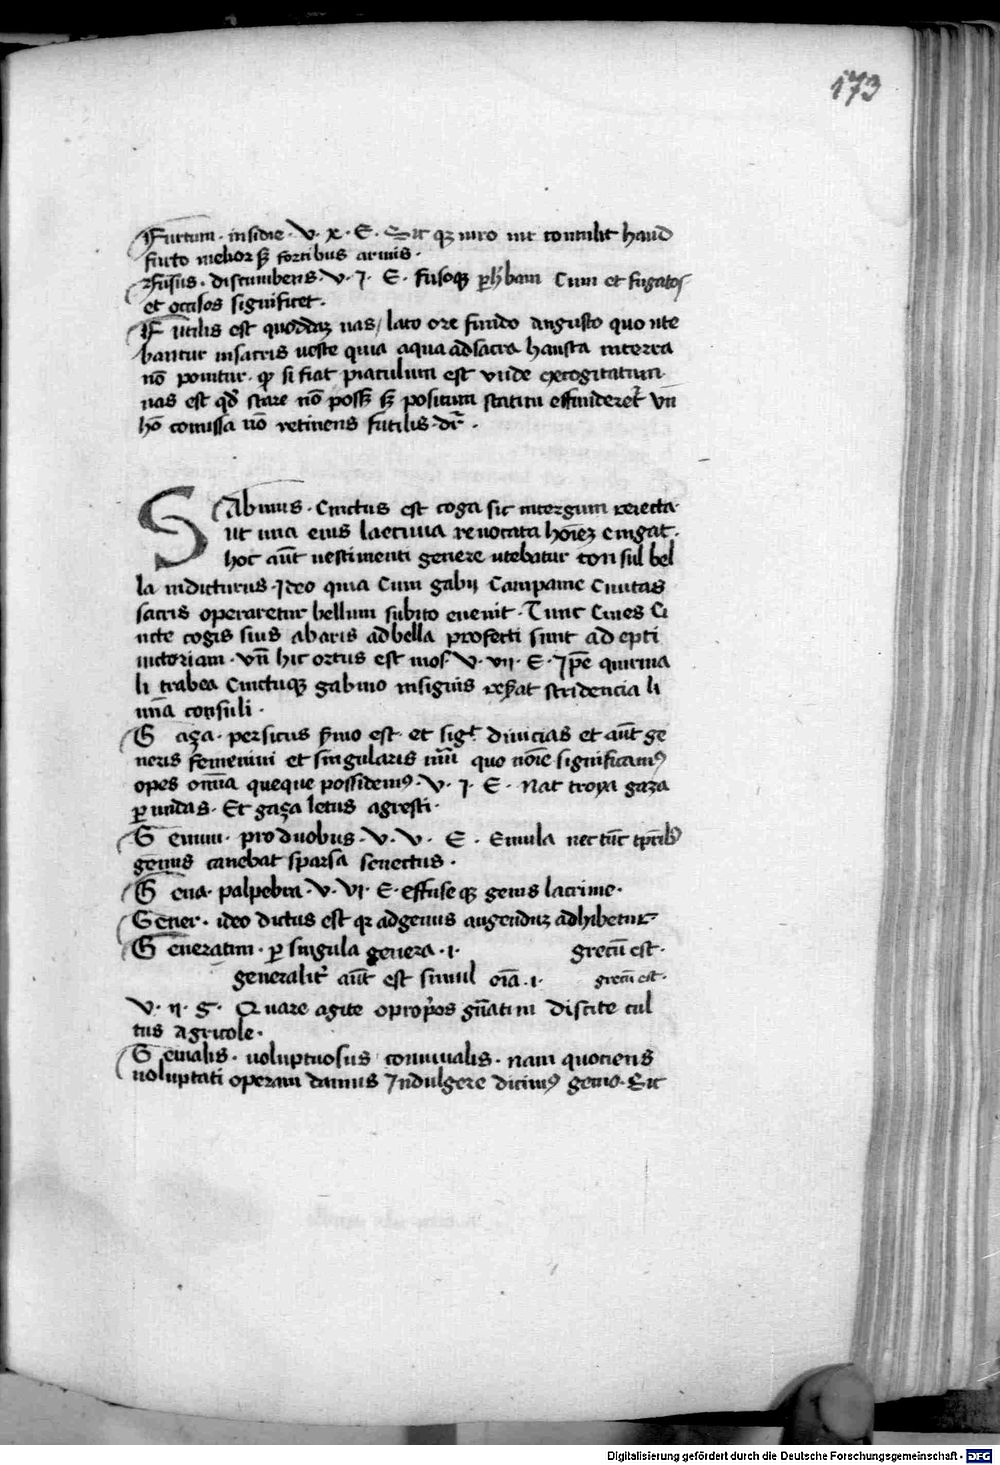 173
Furtum · insidie · V · x · E · Sic qꝫ uiro nit contulit haud
furto melior sꝫ fortibus armis ·
Fusus · discumbens · V · I · E · fusoqꝫ ꝑ h̾bam Cum et fugatos
et occisos significet ·
Futilis est quoddaꝫ uas / lato ore fundo angusto quo ute
bantur insacris ueste quia aqua adsacra hausta interra
nō ponitur · qp si fiat piaculum est vnde excogitatum
uas est qd̄ stare nō possꝫ sꝫ positum statim effunderet̄ vn̄
hō comissa nō retinens futilis · dr̄ ·
SAbinus · Cinctus est toga sic intergum reiecta
ut una eius lacinia reuocata hoīeꝫ cingat ·
hoc aūt uestimenti genere utebatur consul bel
la indicturus · Ideo quia Cum gabij Campanie Ciuitas
sacris operaretur bellum subito euenit · Tunc Ciues Ci
ncte togis suis abaris adbella profecti sunt ad epti
uictoriam · vn̄ hic ortus est mos V · vij · E · Ip̄e quirina
li trabea Cinctuqꝫ gabino insignis reserat stridencia li
mīa consuli ·
Gaza · persicus s̄mo est · et sigt̄ diuicias et aūt ge
neris feminini et singularis nūi quo noīe significamꝰ
opes omīa queque possidemꝰ · V · I · E · Nat troya gaza
ꝑ undas · Et gaza letus agresti ·
Gemini · pro duobus · V · V · E · Emula nec tūc tp̄ribꝰ
gemis canebat sparsa senectus ·
Gena · palpebra · V · VI · E · Effuseqꝫ genis lacrime ·
Gener · ideo dictus est qr adgenus augenduꝫ adhibetur
Generatim · ꝑ singula genera · i · grecū est ·
generalit̄ aūt est simul oīa · i · grecū est ·
V · ij · G · Quare agite o prop̄os gn̄atim discite cul
tus agricole ·
Genialis · uoluptuosus conuiualis · nam quociens
uoluptati operam damus Indulgere dicimꝰ genio · Sic
Digitalisierung gefördert durch die Deutsche Forschungsgemeinschaft - DFG